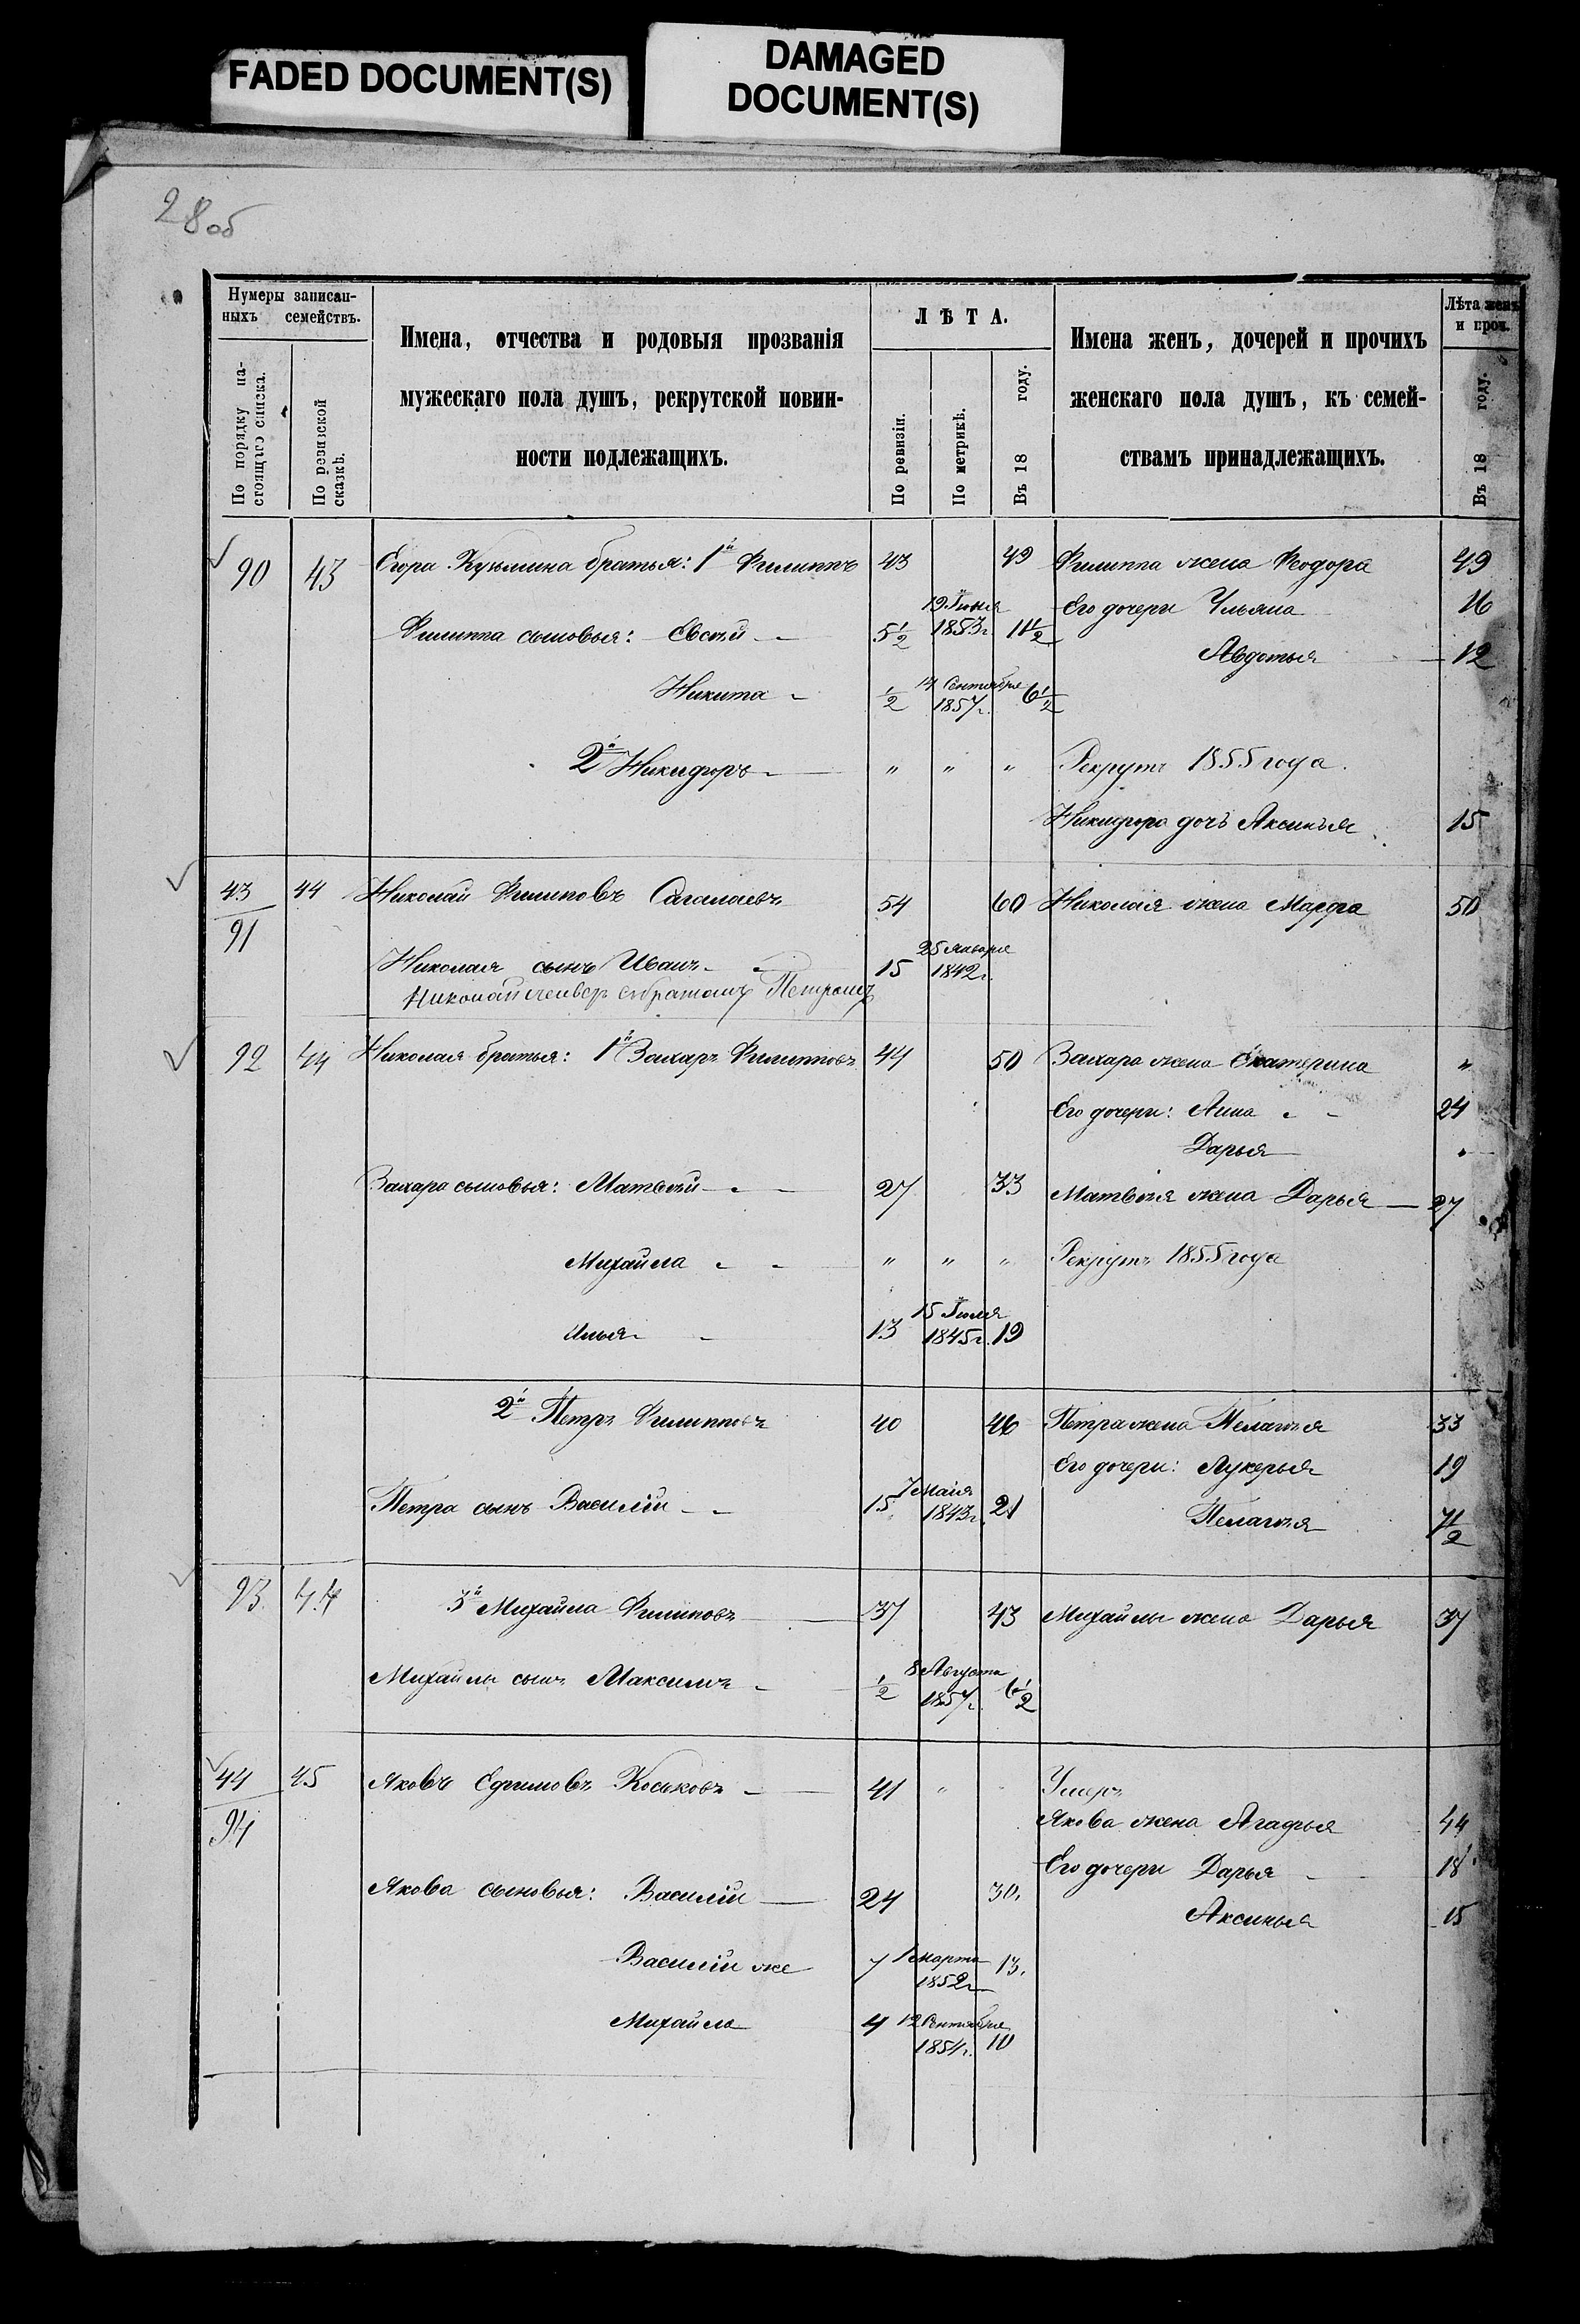 FADED DOCUMENT(S)
DAMAGED
DOCUMENT(S)
28об
Нумеры записан-
ныхъ семействъ.
По порядку на-
стоящаго списка.
По ревизской
сказкѣ.
Имена, отчества и родовыя прозванія
мужескаго пола душъ, рекрутской повин-
ности подлежащихъ.
ЛѢТА.
По ревизіи.
По метрикѣ.
Въ 18 году.
Имена женъ, дочерей и прочихъ
женскаго пола душъ, къ семей-
ствамъ принадлежащихъ.
Лѣта женъ
и проч.
Въ 18 году.
90 43 Егора Кузьмина братья: 1й Филиппъ 43 49 Филиппа жена Феодора 49
Его дочери Ульяна 16
Филиппа сыновья: Евсѣй 5 1/2 19 Іюня 1853г. 11 1/2
Авдотья 12
Никита 1/2 14 Сентября 1857г. 6 1/2
2й Никифоръ " " " Рекрутъ 1855 года.
Никифора дочь Аксинья 15
43 44 Николай Филиповъ 54 60 Николая жена Марфа 50
91
Николая сынъ Иванъ 15 25 Января 1842г.
Николай живетъ съ братомъ Петромъ
92 44 Николая братья: 1й Захаръ Филипповъ 44 50 Захара жена Екатерина "
Его дочери: Анна 24
Дарья "
Захара сыновья: Матвѣй 27 33 Матвѣя жена Дарья 27
Михайла " " " Рекрутъ 1855 года
Илья 13 15 Іюля 1845г. 19
2й Петръ Филипповъ 40 46 Петра жена Пелагѣя 33
Его дочери: Лукерья 19
Петра сынъ Василій 15 7 Мая 1843г. 21
Пелагѣя 7 1/2
93 44 3й Михайла Филиповъ 37 43 Михайлы жена Дарья 37
Михайлы сынъ Максимъ 1/2 8 Августа 1857г. 6 1/2
44 45 Яковъ Ефимовъ Коськовъ 41 " Умеръ
94
Якова жена Агафья 44
Его дочери Дарья 18
Якова сыновья: Василій 24 30.
Аксинья 15
Василій же 7 1 Марта 1852г. 13.
Михайла 4 12 Сентября 1854г. 10